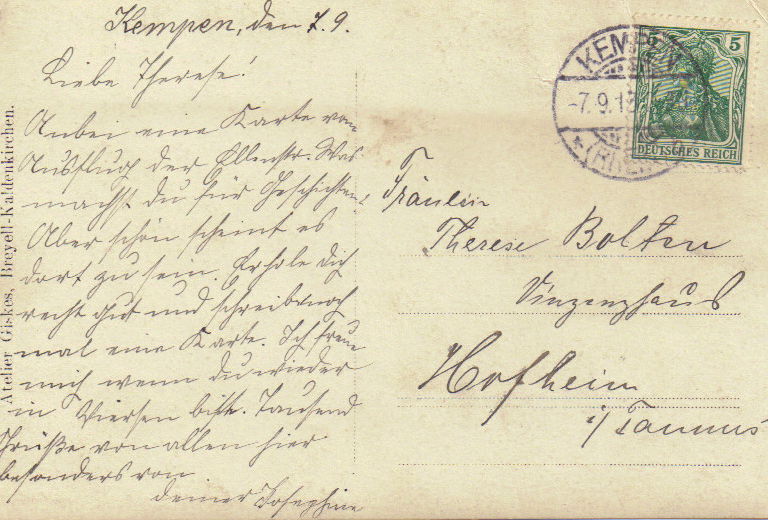 Kempen, den 7.9.
Liebe Therese!
Anbei eine Karte vom
Ausflug der Ellenstr. Was
machst du für Geschichten?
Aber schön scheint es
dort zu sein. Erhole dich
recht gut und schreibe noch
mal eine Karte. Ich freue
mich wenn du wieder
in Viersen bist. Tausend
Grüße von allen hier
besonders von
deiner Josephine
Atelier Giskes, Breyell-Kaldenkirchen.
KEMPEN
-7.9.1
(RHEIN)
5
DEUTSCHES REICH
Fräulein
Therese Bolten
Vinzenzhaus
Hofheim
i/Taunus